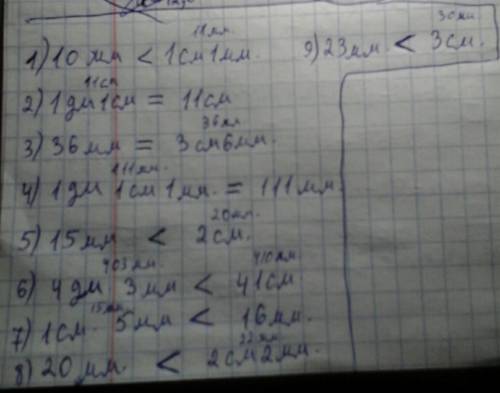 11мм.
1) 10 мм < 1см 1мм.
11см
2) 1 дм 1см = 11см
36мм
3) 36мм = 3см6мм.
111мм.
4) 1дм 1см 1мм. = 111мм.
20мм.
5) 15мм < 2см.
403мм. 410мм.
6) 4дм 3мм < 41см
15мм
7) 1см. 5мм < 16мм.
22мм.
8) 20мм. < 2см2мм.
30мм
9) 23мм. < 3см.